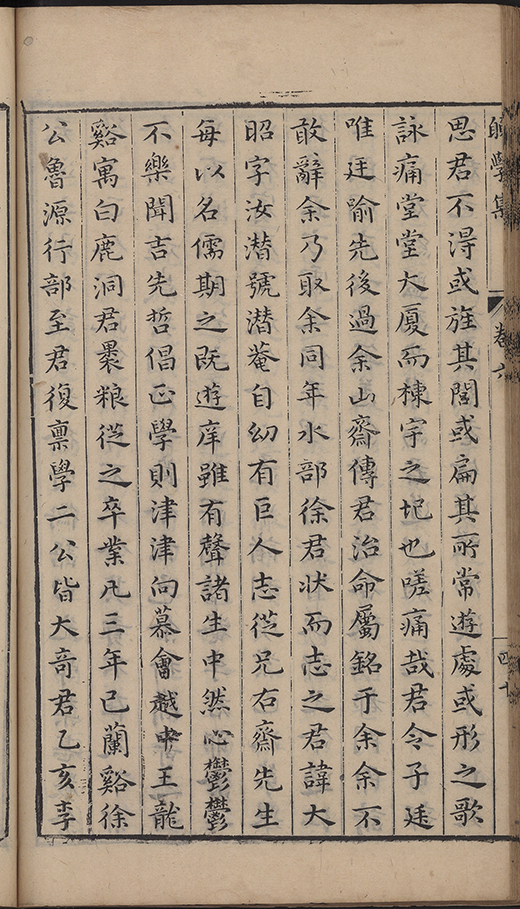 學集
卷六
四十
思君不淂或旌其閭或扁其所常遊處或形之歌
詠痛堂堂大厦而棟宇之圮也嗟痛哉君令子廷
唯廷喻先後過余山齋傳君治命屬銘于余余不
敢辭余乃取余同年水部徐君状而志之君諱大
昭字汝潜號潜菴自幼有巨人志從兄右齋先生
每以名儒期之既遊庠雖有聲諸生中然心鬱鬱
不樂聞吉先哲倡正學則津津向慕會越中王龍
谿寓白鹿洞君褁粮從之卒業凡三年已蘭谿徐
公魯源行部至君復禀學二公皆大奇君乙亥李